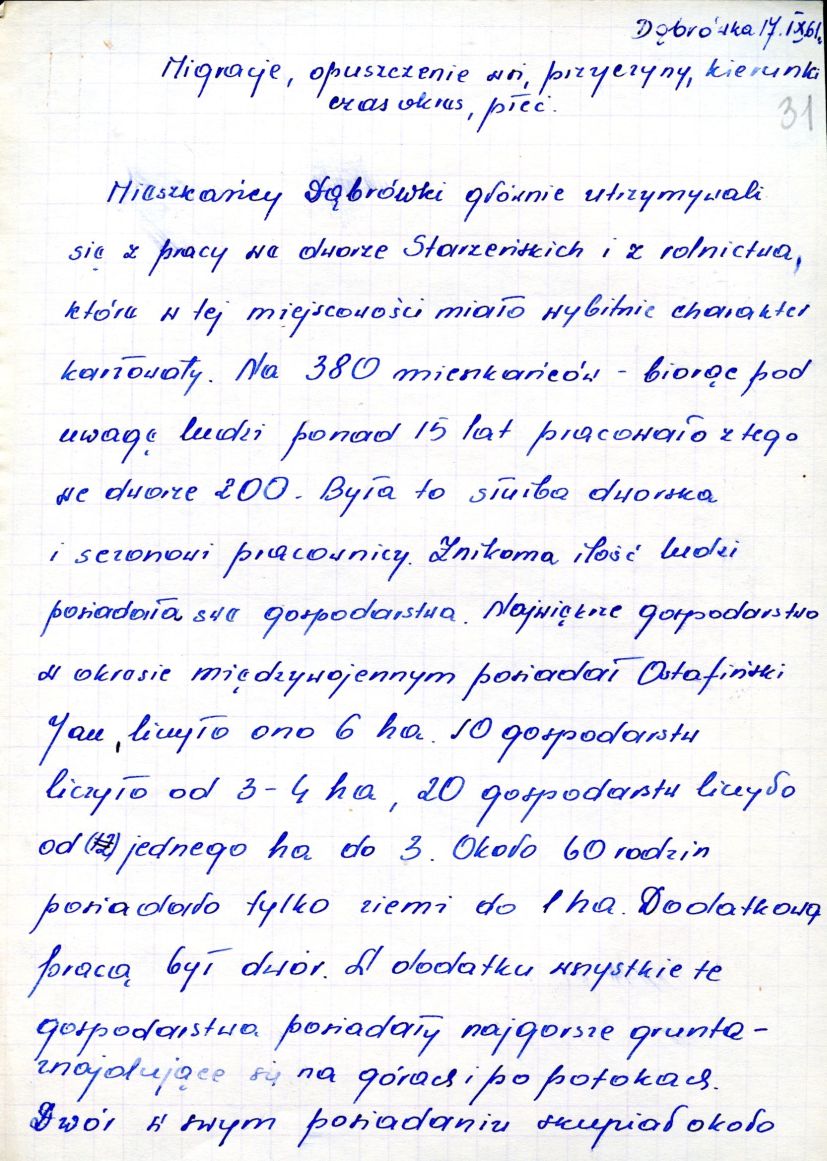 Dąbrówka 17.IX.61.
Migracje, opuszczenie wsi, przyczyny, kierunki
czas okres, płeć.
31
Mieszkańcy Dąbrówki głównie utrzymywali
się z pracy we dworze Starzeńskich i z rolnictwa,
które w tej miejscowości miało wybitnie charakter
karłowaty. Na 380 mieszkańców - biorąc pod
uwagę ludzi ponad 15 lat pracowało z tego
we dworze 200. Była to służba dworska
i sezonowi pracownicy. Znikoma ilość ludzi
posiadała swe gospodarstwa. Największe gospodarstwo
w okresie międzywojennym posiadał Ostafiński
Jan, liczyło ono 6 ha. 10 gospodarstw
liczyło od 3-4 ha, 20 gospodarstw liczyło
od jednego ha do 3. Około 60 rodzin
posiadało tylko ziemi do 1 ha. Dodatkową
pracą był dwór. W dodatku wszystkie te
gospodarstwa posiadały najgorsze grunta -
znajdujące się na górach i po potokach.
Dwór w swym posiadaniu skupiał około